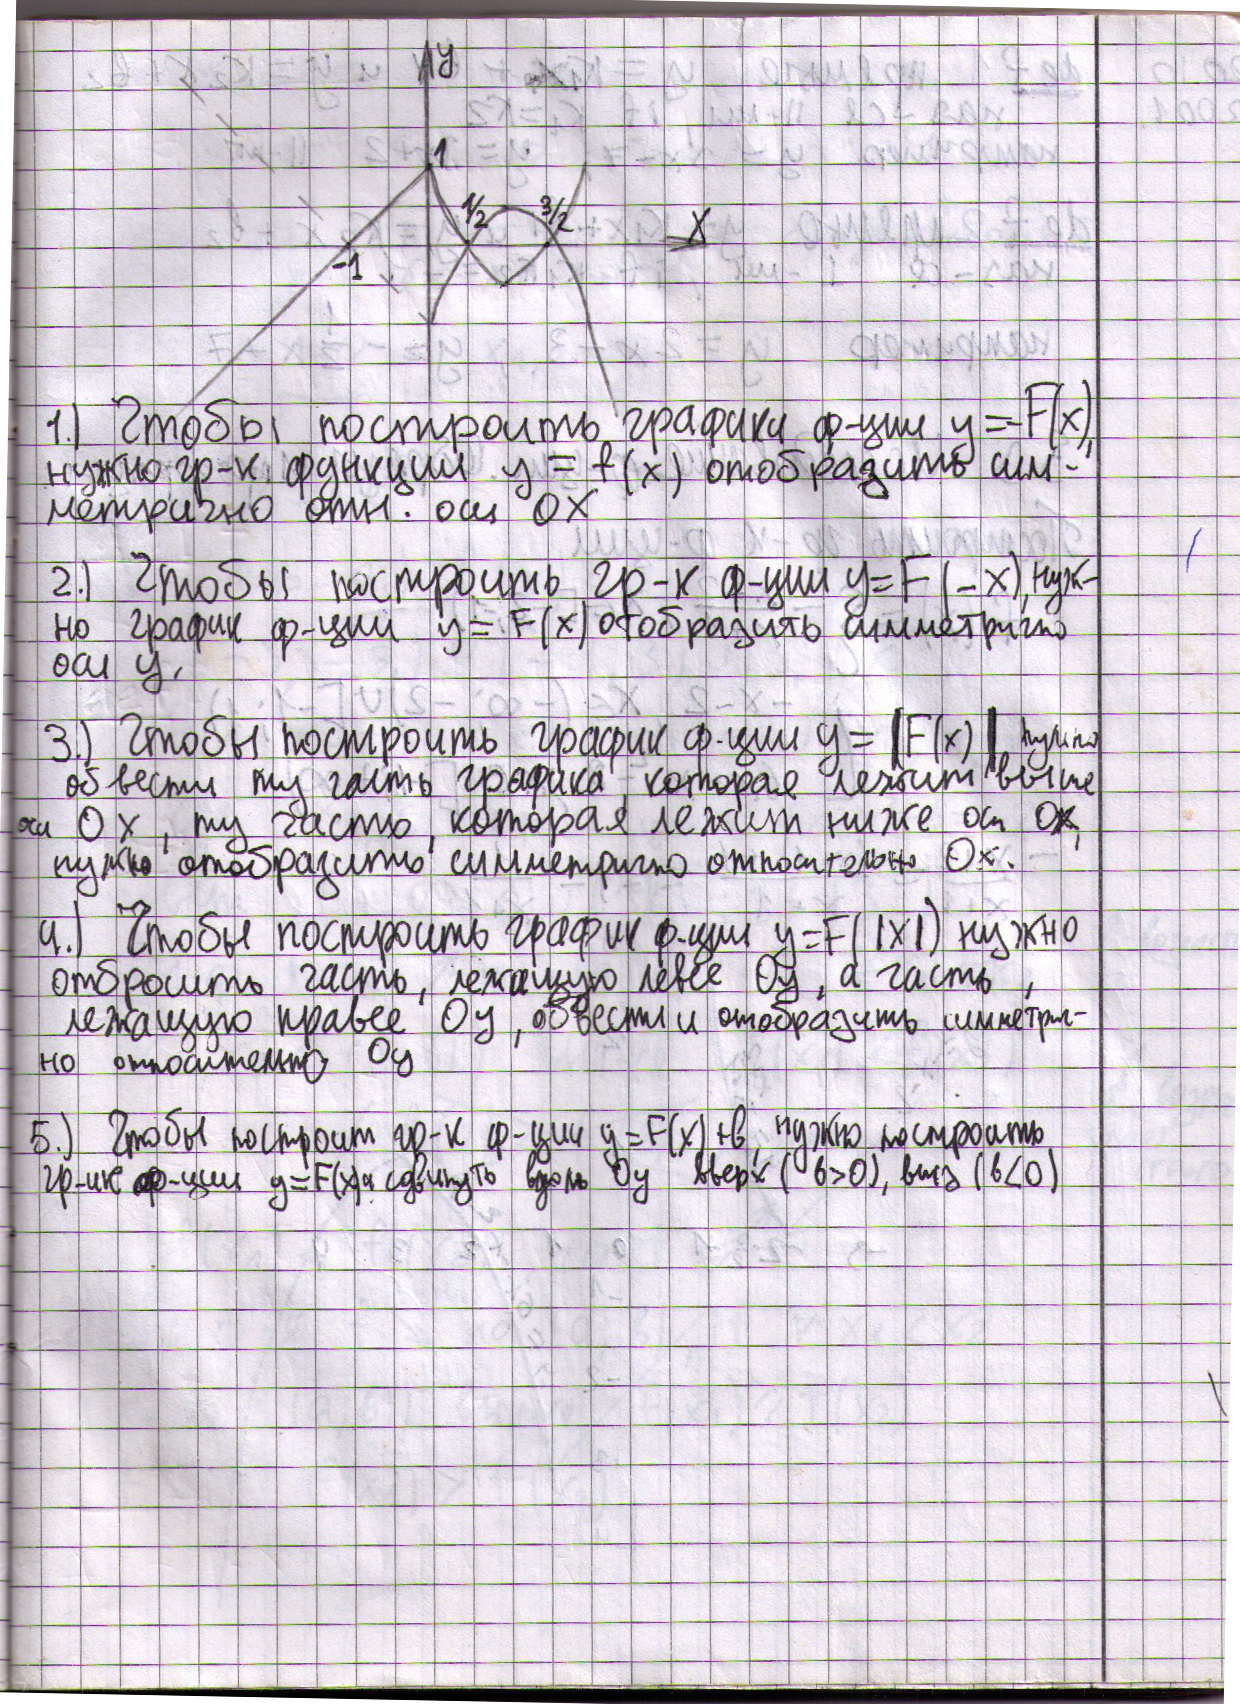 y
1
1/2
3/2
X
-1
1.) Чтобы построить графики ф-ции y=-F(x),
нужно гр-к функции y = f(x) отобразить сим-
метрично отн. оси OX
2.) Чтобы построить гр-к ф-ции y=F(-x), нуж-
но график ф-ции y=F(x) отобразить симметрично
оси y.
3.) Чтобы построить график ф-ции y=|F(x)|, нужно
обвести ту часть графика, которая лежит выше
оси Ox, ту часть, которая лежит ниже оси Ox,
нужно отобразить симметрично относительно Ox.
4.) Чтобы построить график ф-ции y=F(|X|) нужно
отбросить часть, лежащую левее Oy, а часть,
лежащую правее Oy, обвести и отобразить симметрич-
но относительно Oy
5.) Чтобы построит гр-к ф-ции y=F(x)+в, нужно построить
гр-ик ф-ции y=F(x) и сдвинуть вдоль Oy вверх (в>0), вниз (в<0)